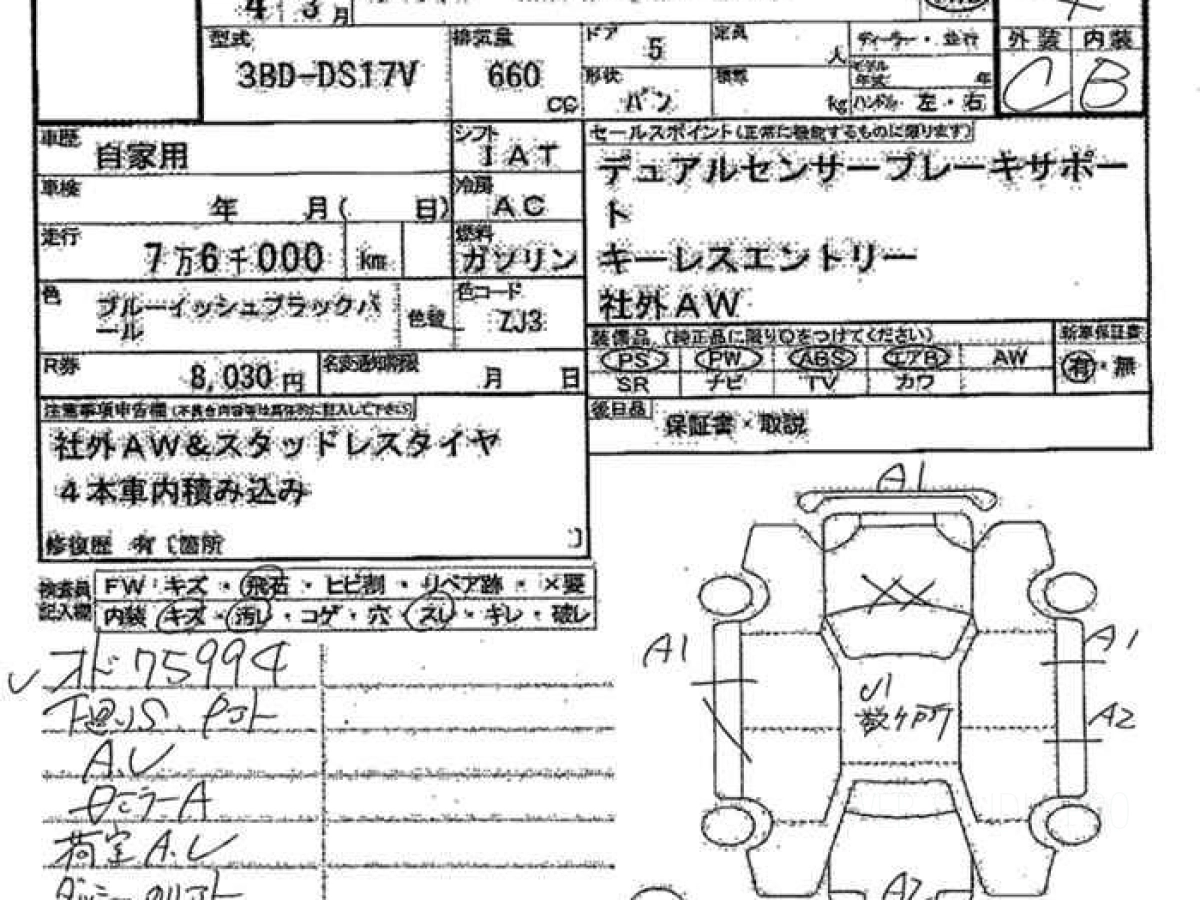 4 3月
型式
3BD-DS17V
排気量
660
CC
ドア
5
定員
人
ディーラー・並行
外装 内装
C B
形状
バン
積載
kg
モデル年式 年
ハンドル 左・右
車歴
自家用
シフト
IAT
車検
年 月( 日)
冷房
AC
走行
7万6千000 km
燃料
ガソリン
色
ブルーイッシュブラックパ
ール
色替
色コード
ZJ3
R券
8,030円
名変通知期限
月 日
セールスポイント(正常に機能するものに限ります)
デュアルセンサーブレーキサポー
ト
キーレスエントリー
社外AW
装備品 (純正品に限り○をつけてください)
新車保証書
PS PW ABS エアB AW
有・無
SR ナビ TV カワ
後日品
保証書×取説
注意事項申告欄(不具合内容等は具体的に記入して下さい)
社外AW&スタッドレスタイヤ
4本車内積み込み
修復歴 有〔箇所 〕
検査員
記入欄
FW キズ・飛石・ヒビ割・リペア跡・×要
内装 キズ・汚レ・コゲ・穴・スレ・キレ・破レ
オド 75994
A.U
荷室A.U
A1
XX
A1
A1
U1
数ヶ所
A2
A2